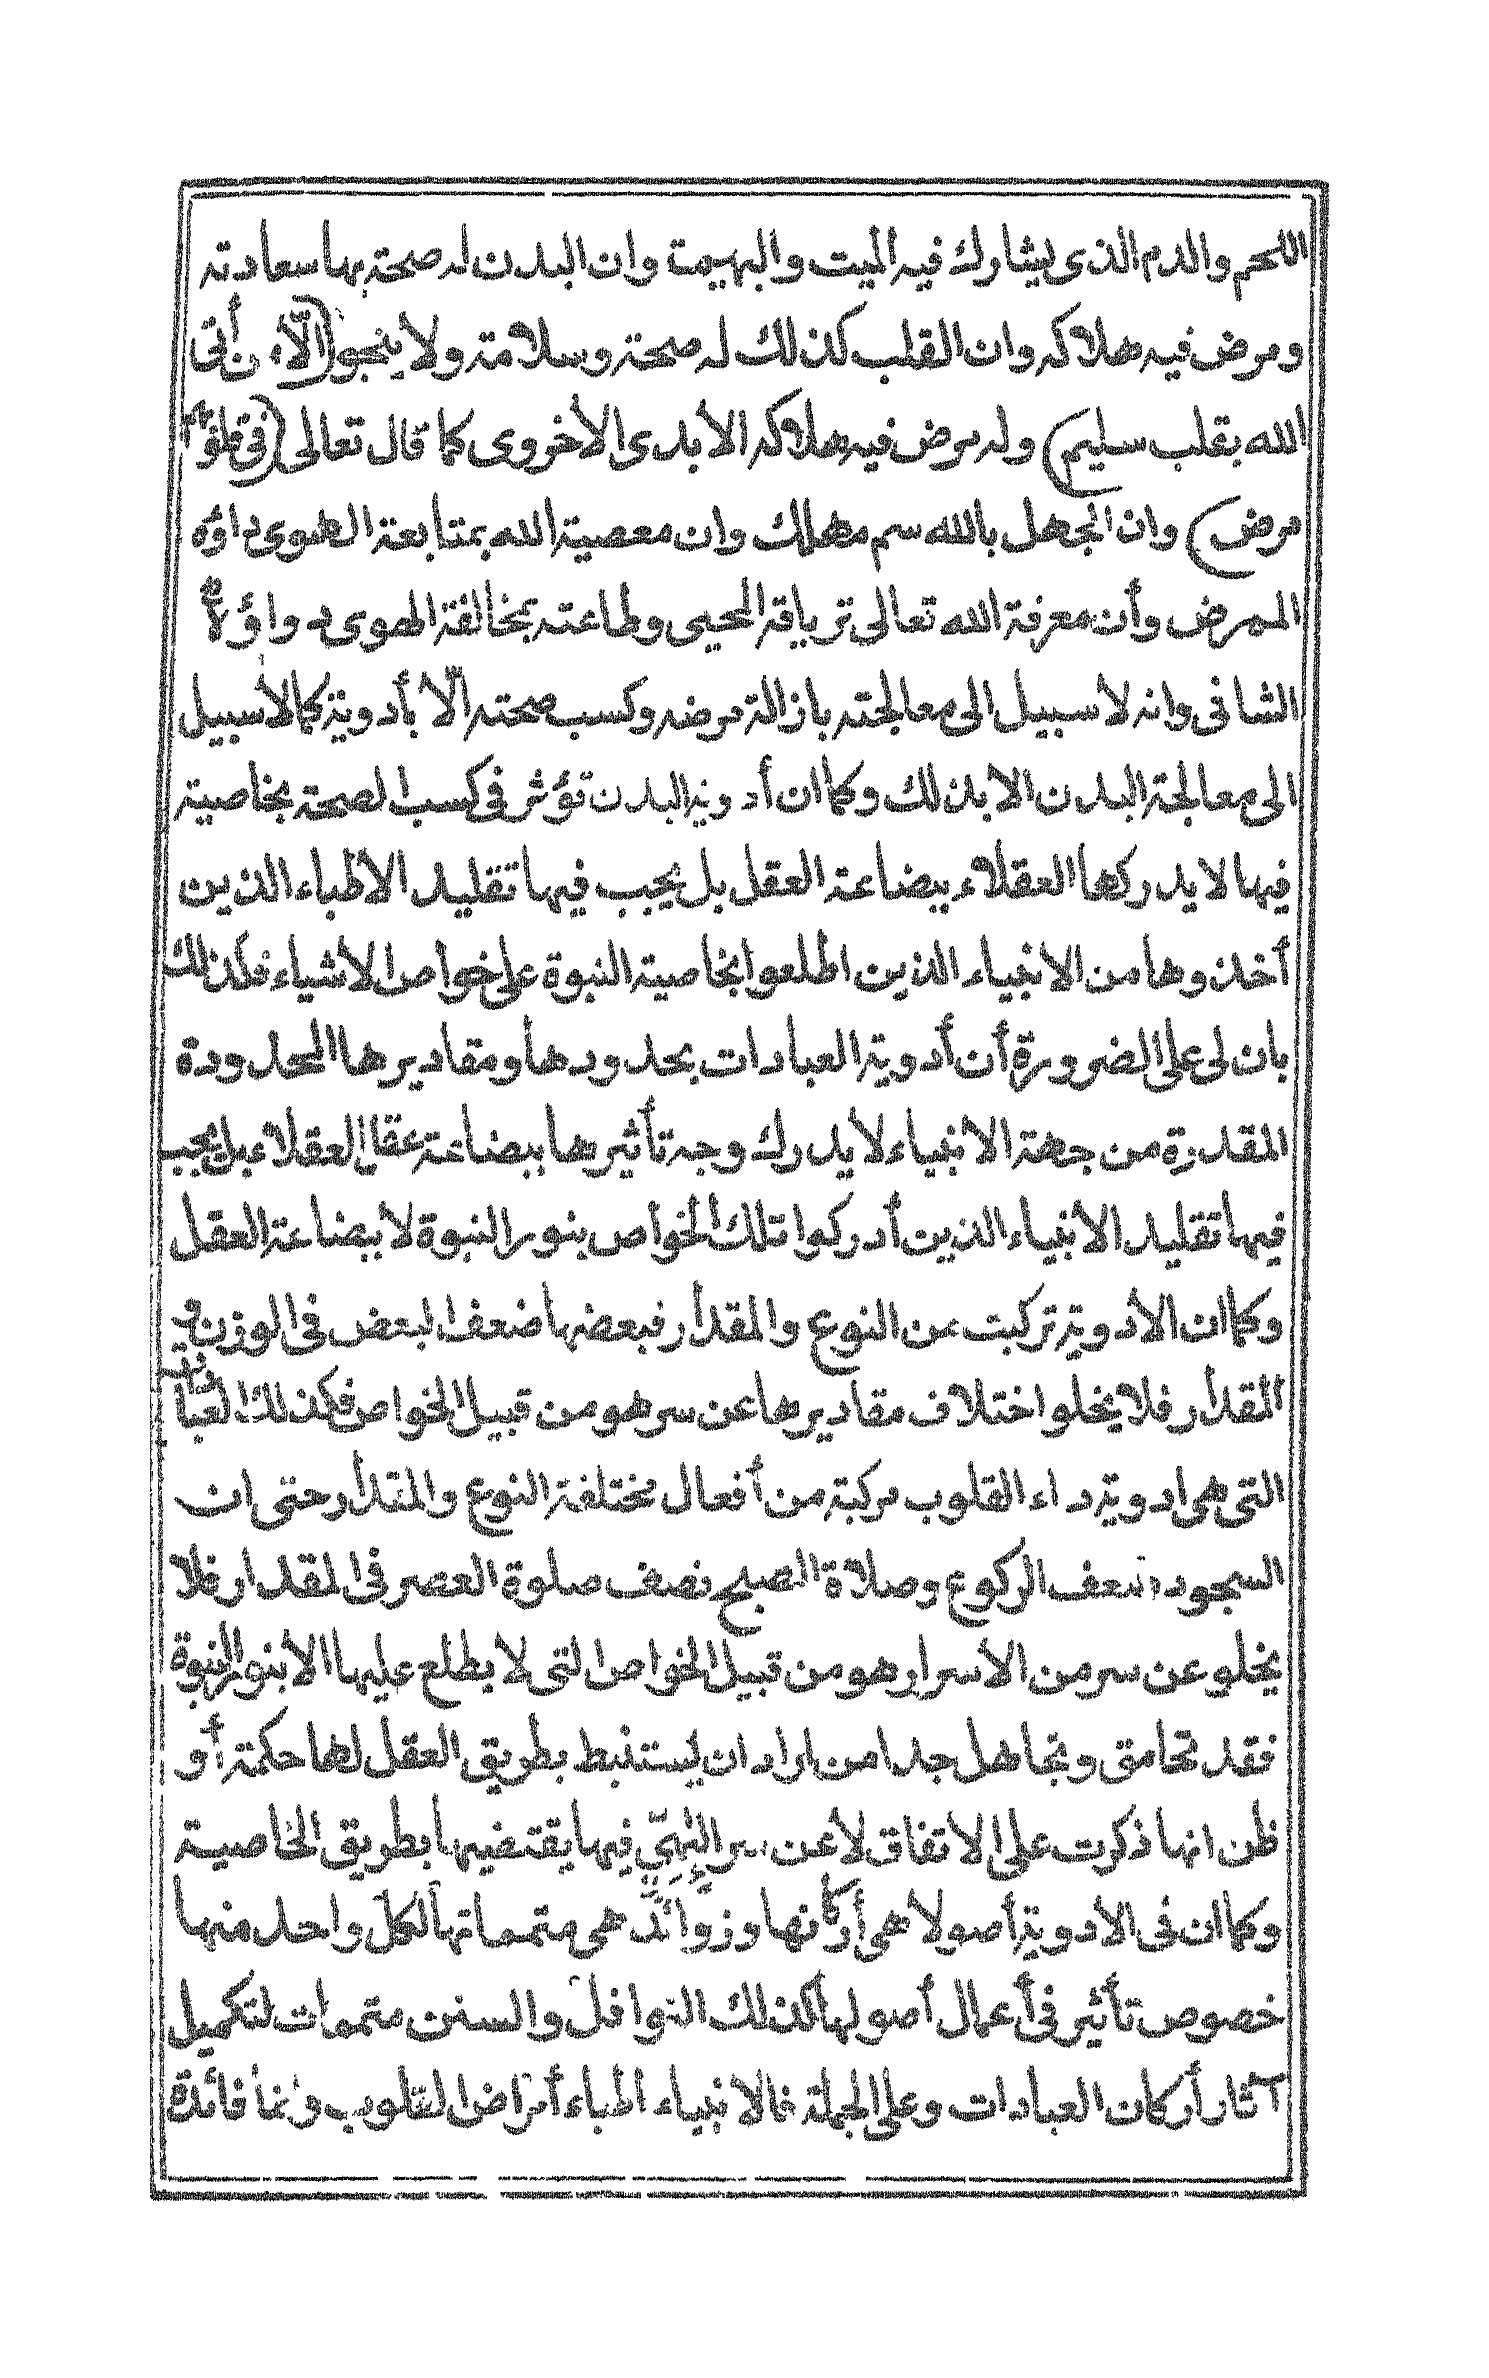 اللحم والدم الذى يشارك فيه الميت والبهيمة وان البدن له صحة بها سعادته
ومرض فيه هلاكه وان القلب كذلك له صحة وسلامة ولا ينجو (الّا من أتى
الله بقلب سليم) وله مرض فيه هلاكه الأبدى الأخروى كما قال تعالى (فى قلوبهم
مرض) وان الجهل بالله سم مهلك وان معصية الله بمتابعة الهوى داؤه
الممرض وأن معرفة الله تعالى ترياقه المحيى وطاعته بمخالفة الهوى دواؤه
الشافى وانه لا سبيل الى معالجته بازالة مرضه وكسب صحته الّا بأدوية كما لا سبيل
الى معالجة البدن الا بذلك وكما ان أدوية البدن تؤثر فى كسب الصحة بخاصية
فيها لا يدركها العقلاء ببضاعة العقل بل يجب فيها تقليد الأطباء الذين
أخذوها من الانبياء الذين اطلعوا بخاصية النبوة على خواص الأشياء فكذلك
بان لى على الضرورة أن أدوية العبادات بحدودها ومقاديرها المحدودة
المقدرة من جهة الانبياء لا يدرك وجه تأثيرها ببضاعة عقل العقلاء بل يجب
فيها تقليد الأنبياء الذين أدركوا تلك الخواص بنور النبوة لا ببضاعة العقل
وكما ان الأدوية تركبت من النوع والمقدار فبعضها ضعف البعض فى الوزن و
المقدار فلا يخلو اختلاف مقاديرها عن سر هو من قبيل الخواص فكذلك العبادات
التى هى ادوية داء القلوب مركبة من أفعال مختلفة النوع والمقدار حتى ان
السجود ضعف الركوع وصلاة الصبح نصف صلوة العصر فى المقدار فلا
يخلو عن سر من الأسرار هو من قبيل الخواص التى لا يطلع عليها الا بنور النبوة
فقد تحامق وتجاهل جدا من اراد ان يستنبط بطريق العقل لها حكمة أو
ظن انها ذكرت على الاتفاق لا عن سر الٰهىّ فيها يقتضيها بطريق الخاصية
وكما ان فى الادوية أصولا هى أركانها وزوائد هى متمماتها لكل واحد منها
خصوص تأثير فى أعمال أصولها كذلك النوافل والسنن متممات لتكميل
آثار أركان العبادات وعلى الجملة فالانبياء أطباء أمراض القلوب وانما فائدة